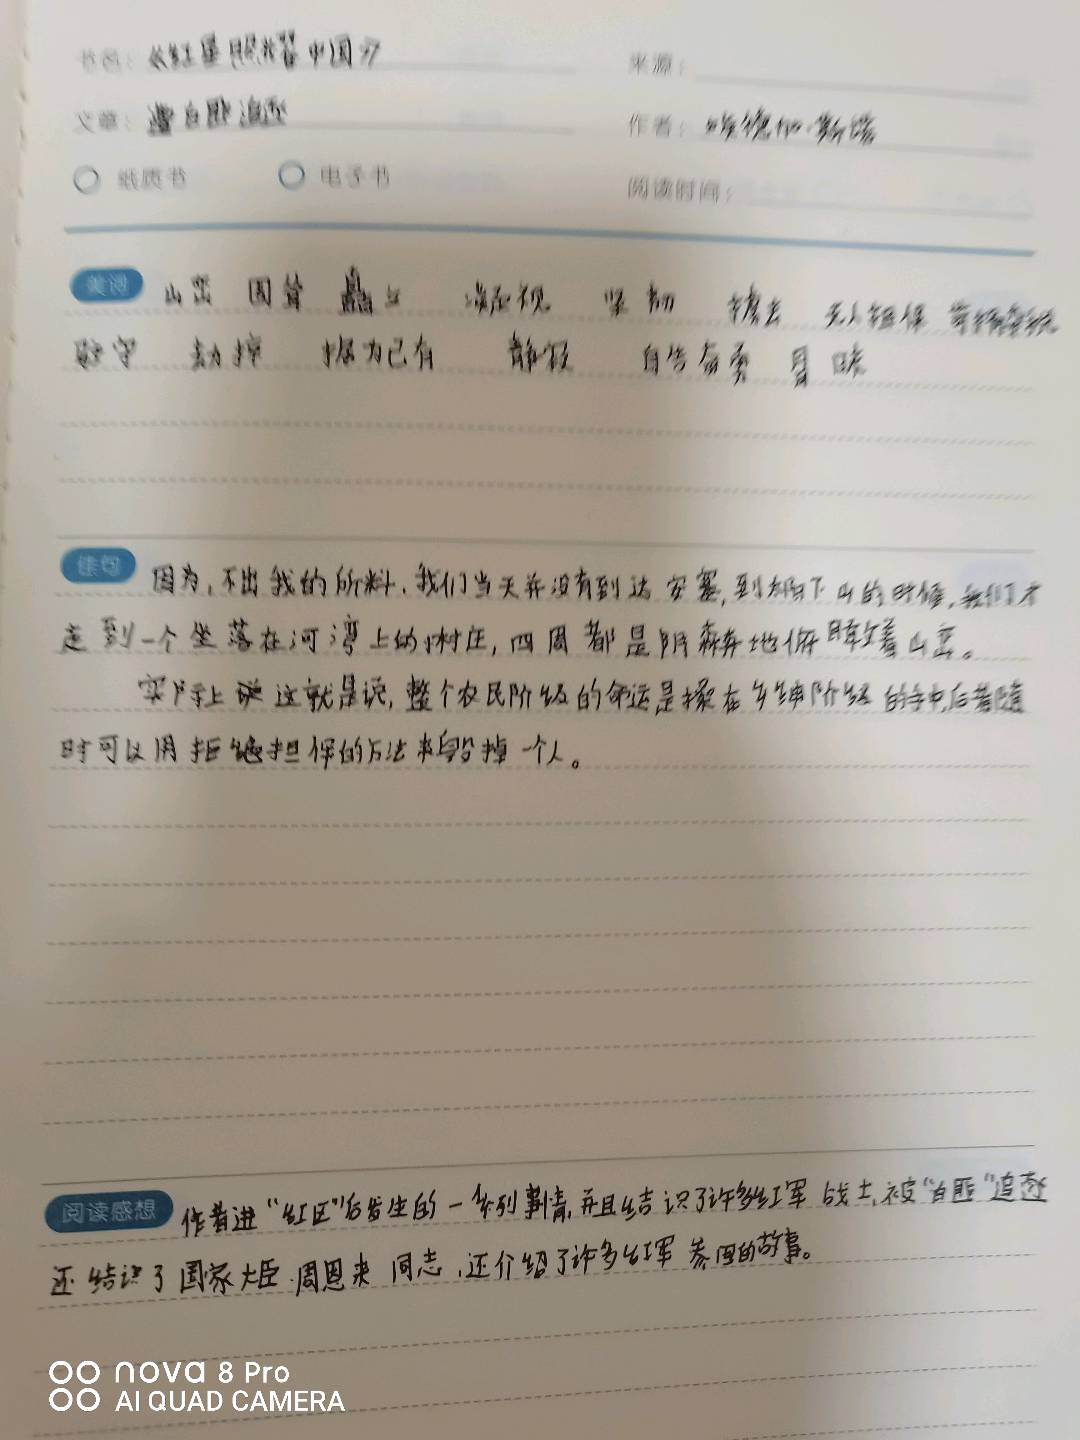 书名：《红星照耀中国》
来源：
文章：遭白匪追逐
作者：埃德加·斯诺
纸质书 电子书
阅读时间：
美词 山峦 围脊 矗立 凝视 坚韧 掳去 无人担保
驻守 劫掠 据为己有 静寂 自告奋勇 冒昧
佳句 因为,不出我的所料,我们当天并没有到达安塞,到太阳下山的时候,我们才
走到一个坐落在河湾上的小村庄,四周都是阴森森地俯瞰着山峦。
实际上 这就是说,整个农民阶级的命运是操在乡绅阶级的手中,后者随
时可以用拒绝担保的方法来毁掉一个人。
阅读感想 作者进"红区"后发生的一系列事情,并且结识了许多红军战士,被"白匪"追逐
还结识了国家大臣周恩来同志,还介绍了许多红军参军的故事。
nova 8 Pro
AI QUAD CAMERA